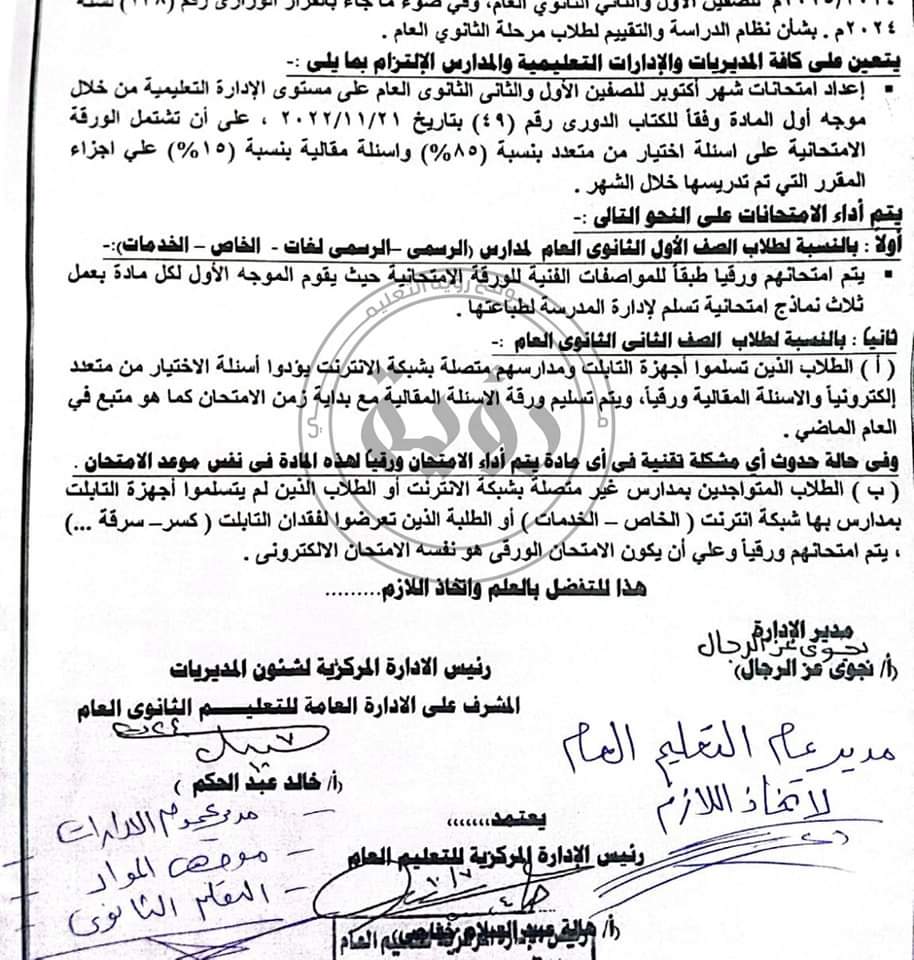 ٢٠٢٤/٢٠٢٥م للصفين الأول والثاني الثانوي العام، وفي ضوء ما جاء بالقرار الوزاري رقم (١٣٨) لسنة
٢٠٢٤م . بشأن نظام الدراسة والتقييم لطلاب مرحلة الثانوي العام .
يتعين على كافة المديريات والإدارات التعليمية والمدارس الإلتزام بما يلى :-
▪ إعداد امتحانات شهر أكتوبر للصفين الأول والثانى الثانوى العام على مستوى الإدارة التعليمية من خلال
موجه أول المادة وفقاً للكتاب الدورى رقم (٤٩) بتاريخ ٢٠٢٢/١١/٢١ ، على أن تشتمل الورقة
الامتحانية على اسئلة اختيار من متعدد بنسبة (٨٥%) واسئلة مقالية بنسبة (١٥%) علي اجزاء
المقرر التي تم تدريسها خلال الشهر .
يتم أداء الامتحانات على النحو التالى :-
أولاً : بالنسبة لطلاب الصف الأول الثانوى العام لمدارس (الرسمى –الرسمى لغات - الخاص – الخدمات):-
▪ يتم امتحانهم ورقيا طبقاً للمواصفات الفنية للورقة الامتحانية حيث يقوم الموجه الأول لكل مادة بعمل
ثلاث نماذج امتحانية تسلم لإدارة المدرسة لطباعتها .
ثانياً : بالنسبة لطلاب الصف الثانى الثانوى العام :-
( أ ) الطلاب الذين تسلموا أجهزة التابلت ومدارسهم متصلة بشبكة الانترنت يؤدوا أسئلة الاختيار من متعدد
إلكترونياً والاسئلة المقالية ورقياً، ويتم تسليم ورقة الاسئلة المقالية مع بداية زمن الامتحان كما هو متبع في
العام الماضي .
وفى حالة حدوث أي مشكلة تقنية فى أى مادة يتم أداء الامتحان ورقياً لهذه المادة فى نفس موعد الامتحان .
( ب ) الطلاب المتواجدين بمدارس غير متصلة بشبكة الانترنت أو الطلاب الذين لم يتسلموا أجهزة التابلت
بمدارس بها شبكة انترنت ( الخاص – الخدمات ) أو الطلبة الذين تعرضوا لفقدان التابلت ( كسر– سرقة ...)
، يتم امتحانهم ورقياً وعلي أن يكون الامتحان الورقى هو نفسه الامتحان الالكترونى .
هذا للتفضل بالعلم واتخاذ اللازم.........
موقع رؤية التعليمي
رؤية
مدير الإدارة
نجوى عز الرجال
(أ/ نجوى عز الرجال)
رئيس الادارة المركزية لشئون المديريات
المشرف على الادارة العامة للتعليـــم الثانوى العام
(أ/ خالد عبد الحكم )
مدير عام التعليم العام
لاتخاذ اللازم
يعتمد.......
رئيس الإدارة المركزية للتعليم العام
(أ/ هالة عبد السلام خفاجى)
– مديري عموم الادارات
– موجهى المواد
– التعليم الثانوى